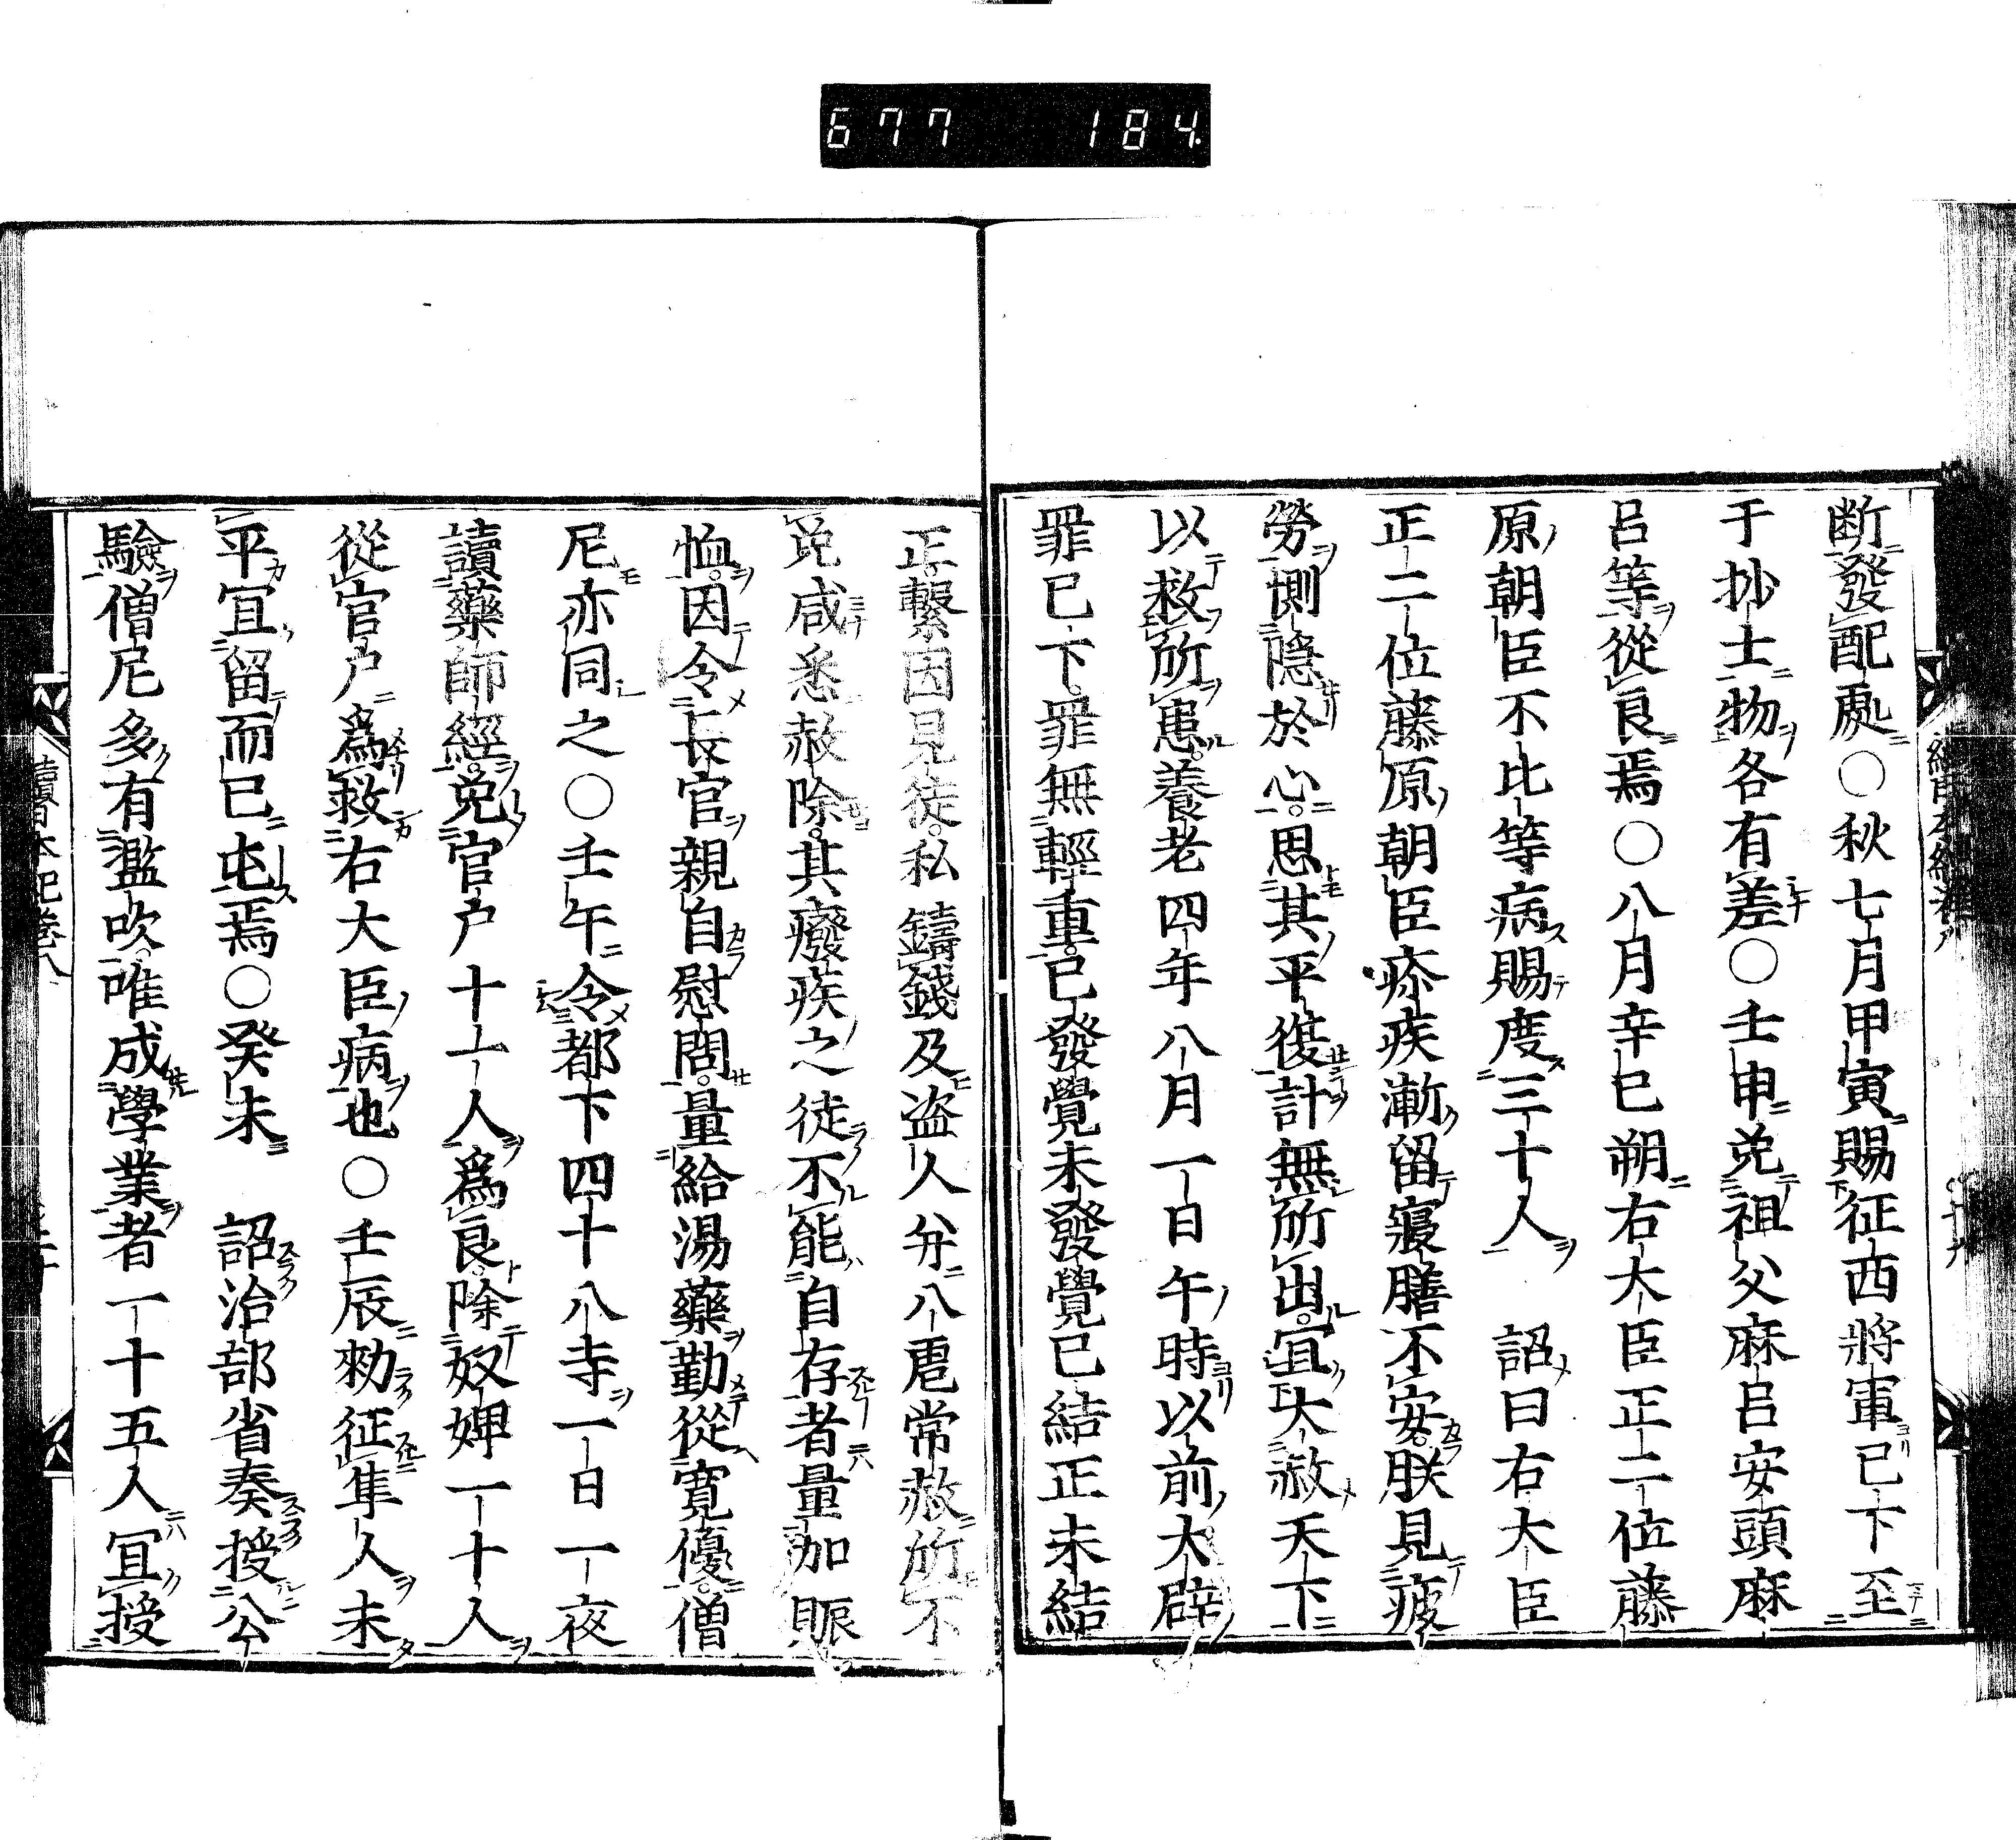 677 184
断發配處○秋七月甲寅賜征西將軍已下至
于抄士物各有差○壬申免祖父麻呂安頭麻
呂等從良焉○八月辛巳朔右大臣正二位藤
原朝臣不比等病賜度三十人 詔曰右大臣
正二位藤原朝臣疹疾漸留寢膳不安朕見疲
勞惻隱於心思其平復計無所出宜大赦天下
以救所患養老四年八月一日午時以前大辟
罪已下罪無輕重已發覺未發覺已結正未結
正繋囚見徒私鑄錢及盗人幷八虐常赦所不
免咸悉赦除其癈疾之徒不能自存者量加賑
恤因令長官親自慰問量給湯藥勤從寛優僧
尼亦同之○壬午令都下四十八寺一日一夜
讀藥師經免官戸十一人爲良除奴婢一十人
從官戸爲救右大臣病也○壬辰勑征隼人未
平宜留而已屯焉○癸未 詔治部省奏授公
驗僧尼多有濫吹唯成學業者一十五人宜授
續日本紀卷八